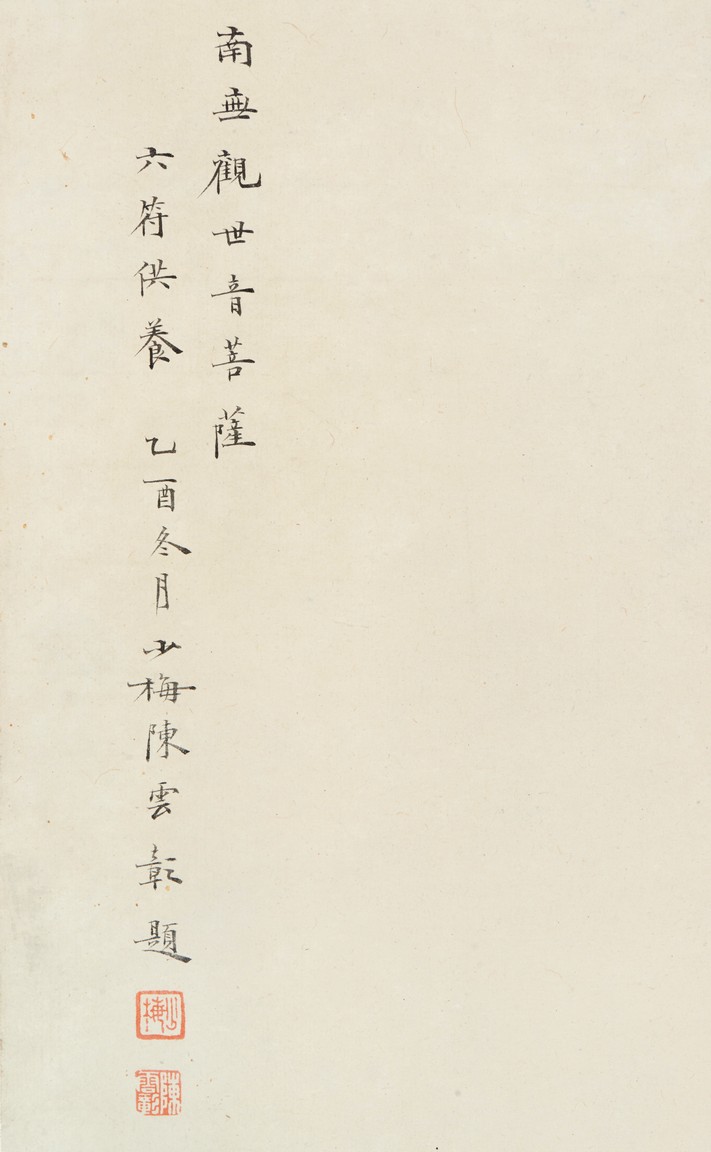 南無觀世音菩薩
六符供養 乙酉冬月少梅陳雲彰題
少梅
陳雲彰